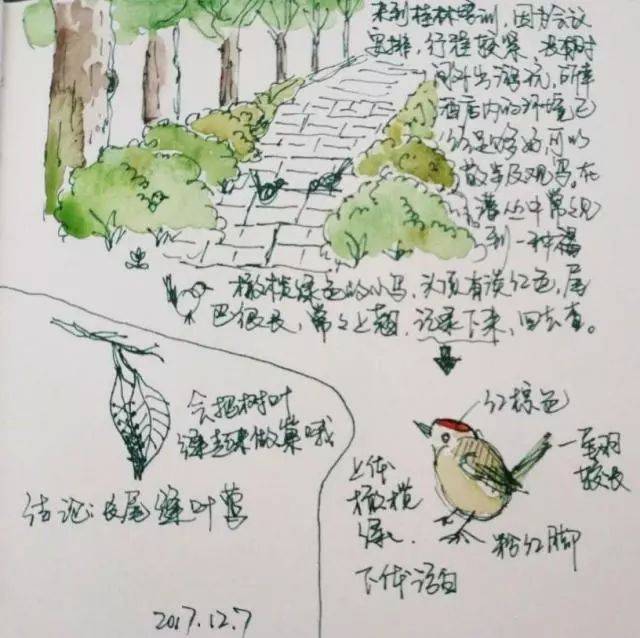 来到桂林培训，因为会议
安排，行程较紧，没有时
间外出游玩，所幸
酒店内的环境已
经是够好，可以
散步及观鸟，在
灌丛中常见
到一种褐
橄榄绿色的小鸟，头顶有淡红色，尾
巴很长，常常上翘，记录下来，回去查。
会把树叶
缝起来做巢哦
结论：长尾缝叶莺
红棕色
尾羽
较长
上体
橄榄
绿
粉红脚
下体污白
2017.12.7